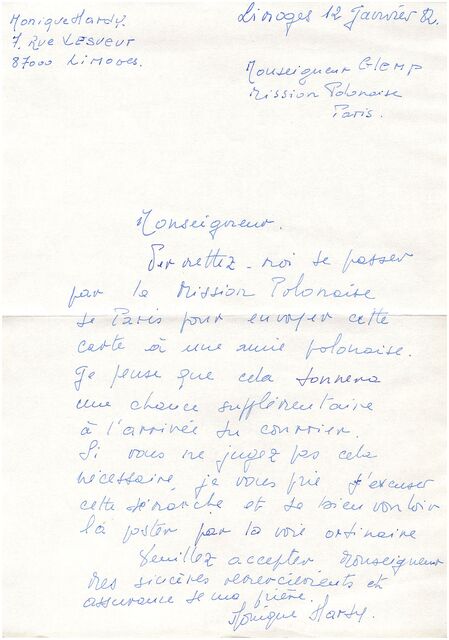 Monique Hardy.
7. Rue LESUEUR
87000 LIMOGES.
Limoges 12 Janvier 82.
Monseigneur GLEMP
Mission Polonaise
Paris.
Monseigneur.
Permettez-moi de passer
par la Mission Polonaise
de Paris pour envoyer cette
carte à une amie polonaise.
Je pense que cela donnera
une chance supplémentaire
à l'arrivée du courrier.
Si vous ne jugez pas cela
nécessaire je vous prie d'excuser
cette démarche et de bien vouloir
la poster par la voie ordinaire
Veuillez accepter Monseigneur
mes sincères remerciements et
assurance de ma prière.
Monique Hardy.